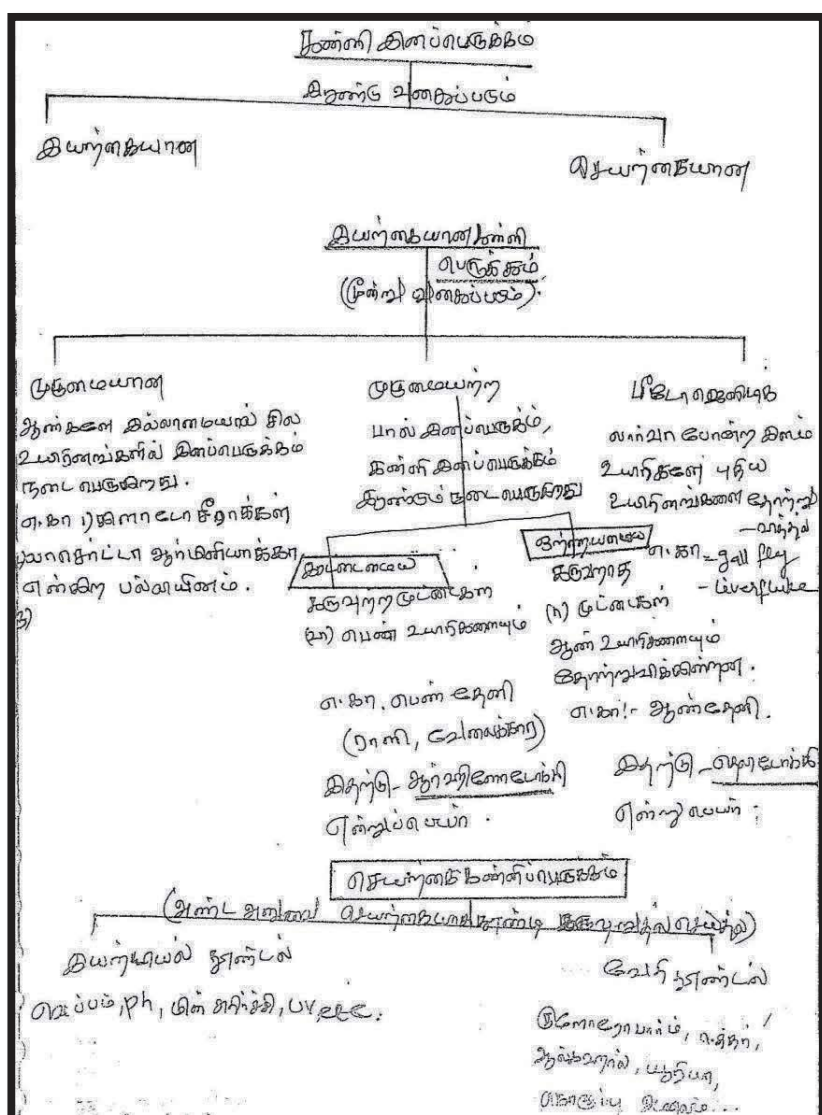 கன்னி இனப்பெருக்கம்
இரண்டு வகைப்படும்
இயற்கையான
செயற்கையான
இயற்கையான கன்னி
பெருக்கம்
(மூன்று வகைப்படும்).
முழுமையான
ஆண்களே இல்லாமையால் சில
உயிரினங்களில் இனப்பெருக்கம்
நடைபெறுகிறது.
எ.கா
என்கிற பல்லியினம்.
3)
முழுமையற்ற
பால் இனப்பெருக்கம்,
கன்னி இனப்பெருக்கம்
இரண்டும் நடைபெறுகிறது
இரட்டைமைய
கருவுற்ற முட்டைகள்
(2n) பெண் உயிரிகளையும்
எ.கா. பெண் தேனி
(ராணி, வேலைக்கார)
இதற்கு -
என்றுப்பெயர்.
ஒற்றைமைய
கருவுறாத
(n) முட்டைகள்
ஆண் உயிரிகளையும்
தோற்றுவிக்கின்றன.
எ.கா:- ஆண்தேனி.
இதற்கு -
என்று பெயர்.
பீடோஜெனிடிக்
லார்வா போன்ற இளம்
உயிரிகளே புதிய
உயிரினங்களை தோற்று
- வித்தல்
எ.கா - gall fly
- Liverfluke
செயற்கை கன்னிப்பெருக்கம்
(அண்ட அணுவை செயற்கையாக தூண்டி கருவுறுதல் செய்தல்)
இயற்பியல் தூண்டல்
வெப்பம், ph, மின் அதிர்ச்சி, UV, etc.
வேதி தூண்டல்
குளோரோபார்ம், ஈத்தர்,
ஆல்கஹால், யூரியா,
கொழுப்பு அமிலம்...